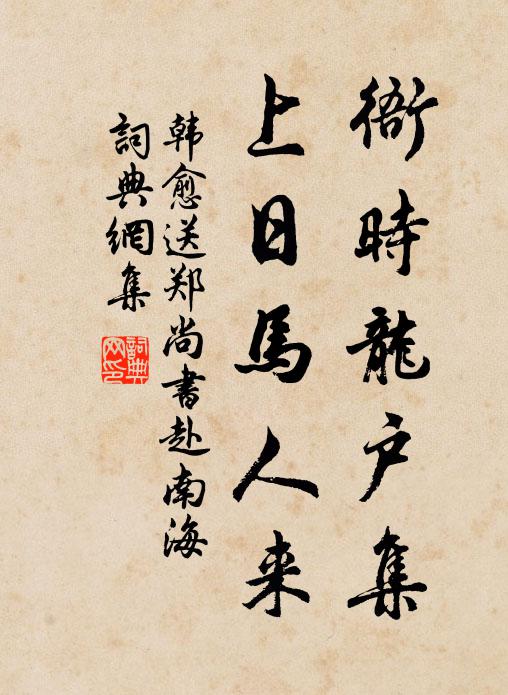 衙時龍户集
上日馬人来
韩愈送郑尚書赴南海
詞典網集
詞典
网印